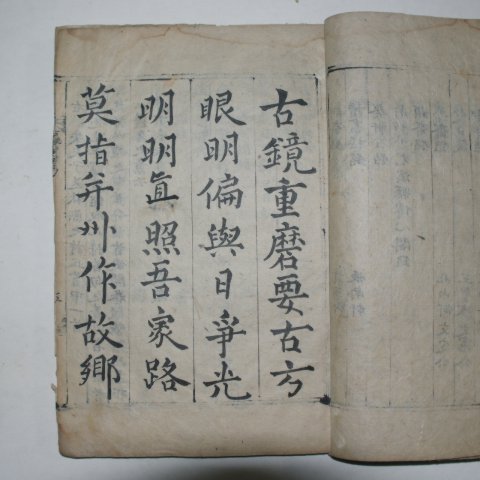 古鏡重磨要古方
眼明偏與日爭光
明明眞照吾家路
莫指幷州作故鄕